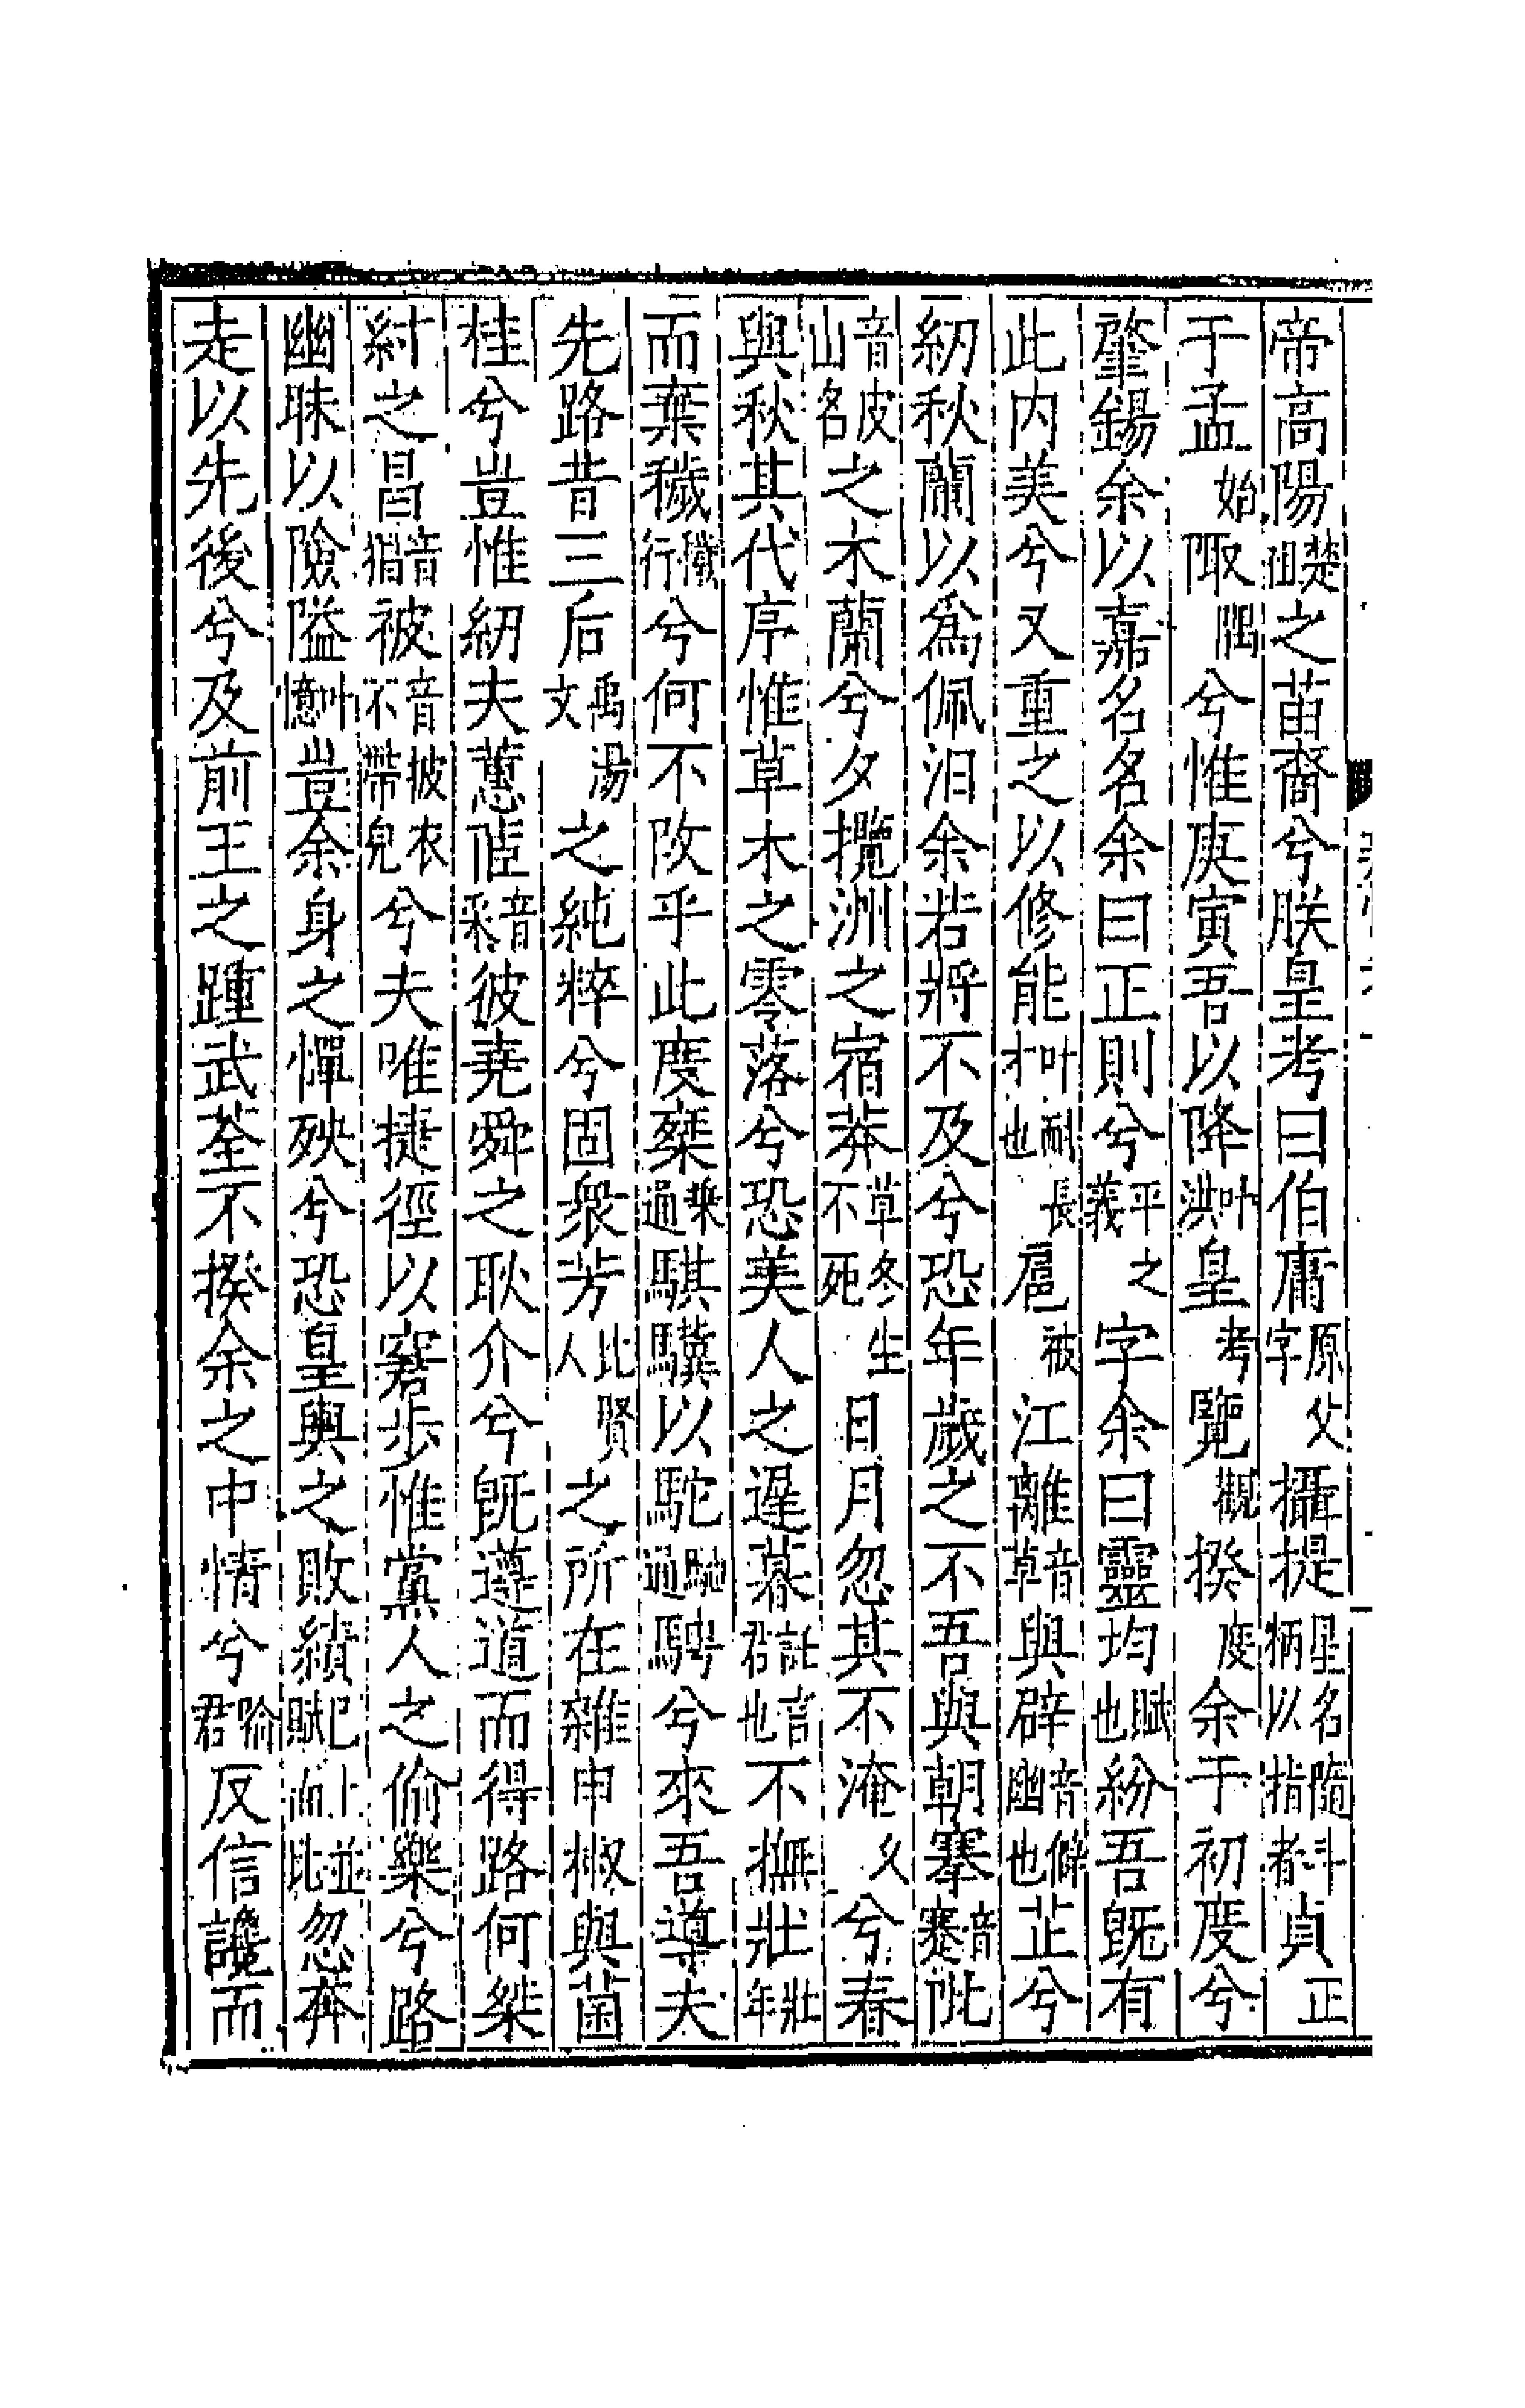 帝高陽楚祖之苗裔兮朕皇考曰伯庸原父字攝提星名隨斗柄以指者貞正
于孟始陬隅兮惟庚寅吾以降叶洪皇考覽觀揆度余于初度兮
肇錫余以嘉名名余曰正則兮平之義字余曰靈均賦也紛吾既有
此内美兮又重之以修能叶耐長才也扈被江離音草與辟音僻幽也芷兮
紉秋蘭以爲佩汨余若將不及兮恐年歲之不吾與朝搴音蹇阰
音皮山名之木蘭兮夕攬洲之宿莽草冬生不死日月忽其不淹久兮春
與秋其代序惟草木之零落兮恐美人之遲暮託言君也不撫壯壯年
而棄穢穢行兮何不改乎此度椉乘通騏驥以駝馳通騁兮來吾導夫
先路昔三后禹湯文之純粹兮固衆芳比賢人之所在雜申椒與菌
桂兮豈惟紉夫蕙茝音采彼堯舜之耿介兮既遵道而得路何桀
紂之昌音猖被音披衣不帶皃兮夫唯捷徑以窘步惟黨人之偷樂兮路
幽昧以險隘叶憶豈余身之憚殃兮恐皇輿之敗績已上並賦而比忽奔
走以先後兮及前王之踵武荃不揆余之中情兮喻君反信讒而